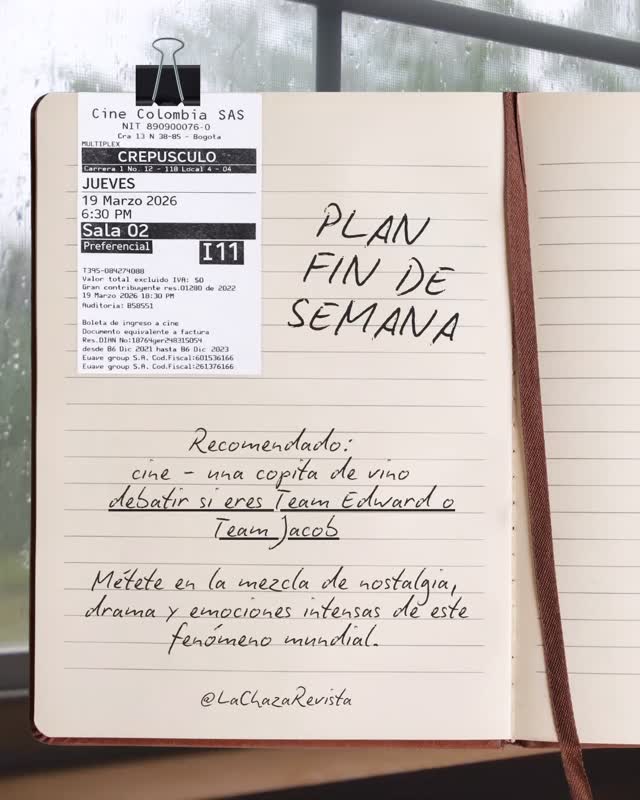 Cine Colombia SAS
NIT 890900076-0
Cra 13 N 38-85 - Bogota
MULTIPLEX
CREPUSCULO
Carrera 1 No. 12 - 118 Local 4 - 04
JUEVES
19 Marzo 2026
6:30 PM
Sala 02
Preferencial
I11
T395-084274088
Valor total excluido IVA: $0
Gran contribuyente res.01280 de 2022
19 Marzo 2026 18:30 PM
Auditoria: B58551
Boleta de ingreso a cine
Documento equivalente a factura
Res.DIAN No:18764ger248315054
desde B6 Dic 2021 hasta B6 Dic 2023
Euave group S.A. Cod.Fiscal:601536166
Euave group S.A. Cod.Fiscal:261376166
PLAN
FIN DE
SEMANA
Recomendado:
cine - una copita de vino
debatir si eres Team Edward o
Team Jacob
Métete en la mezcla de nostalgia,
drama y emociones intensas de este
fenómeno mundial.
@LaChazaRevista